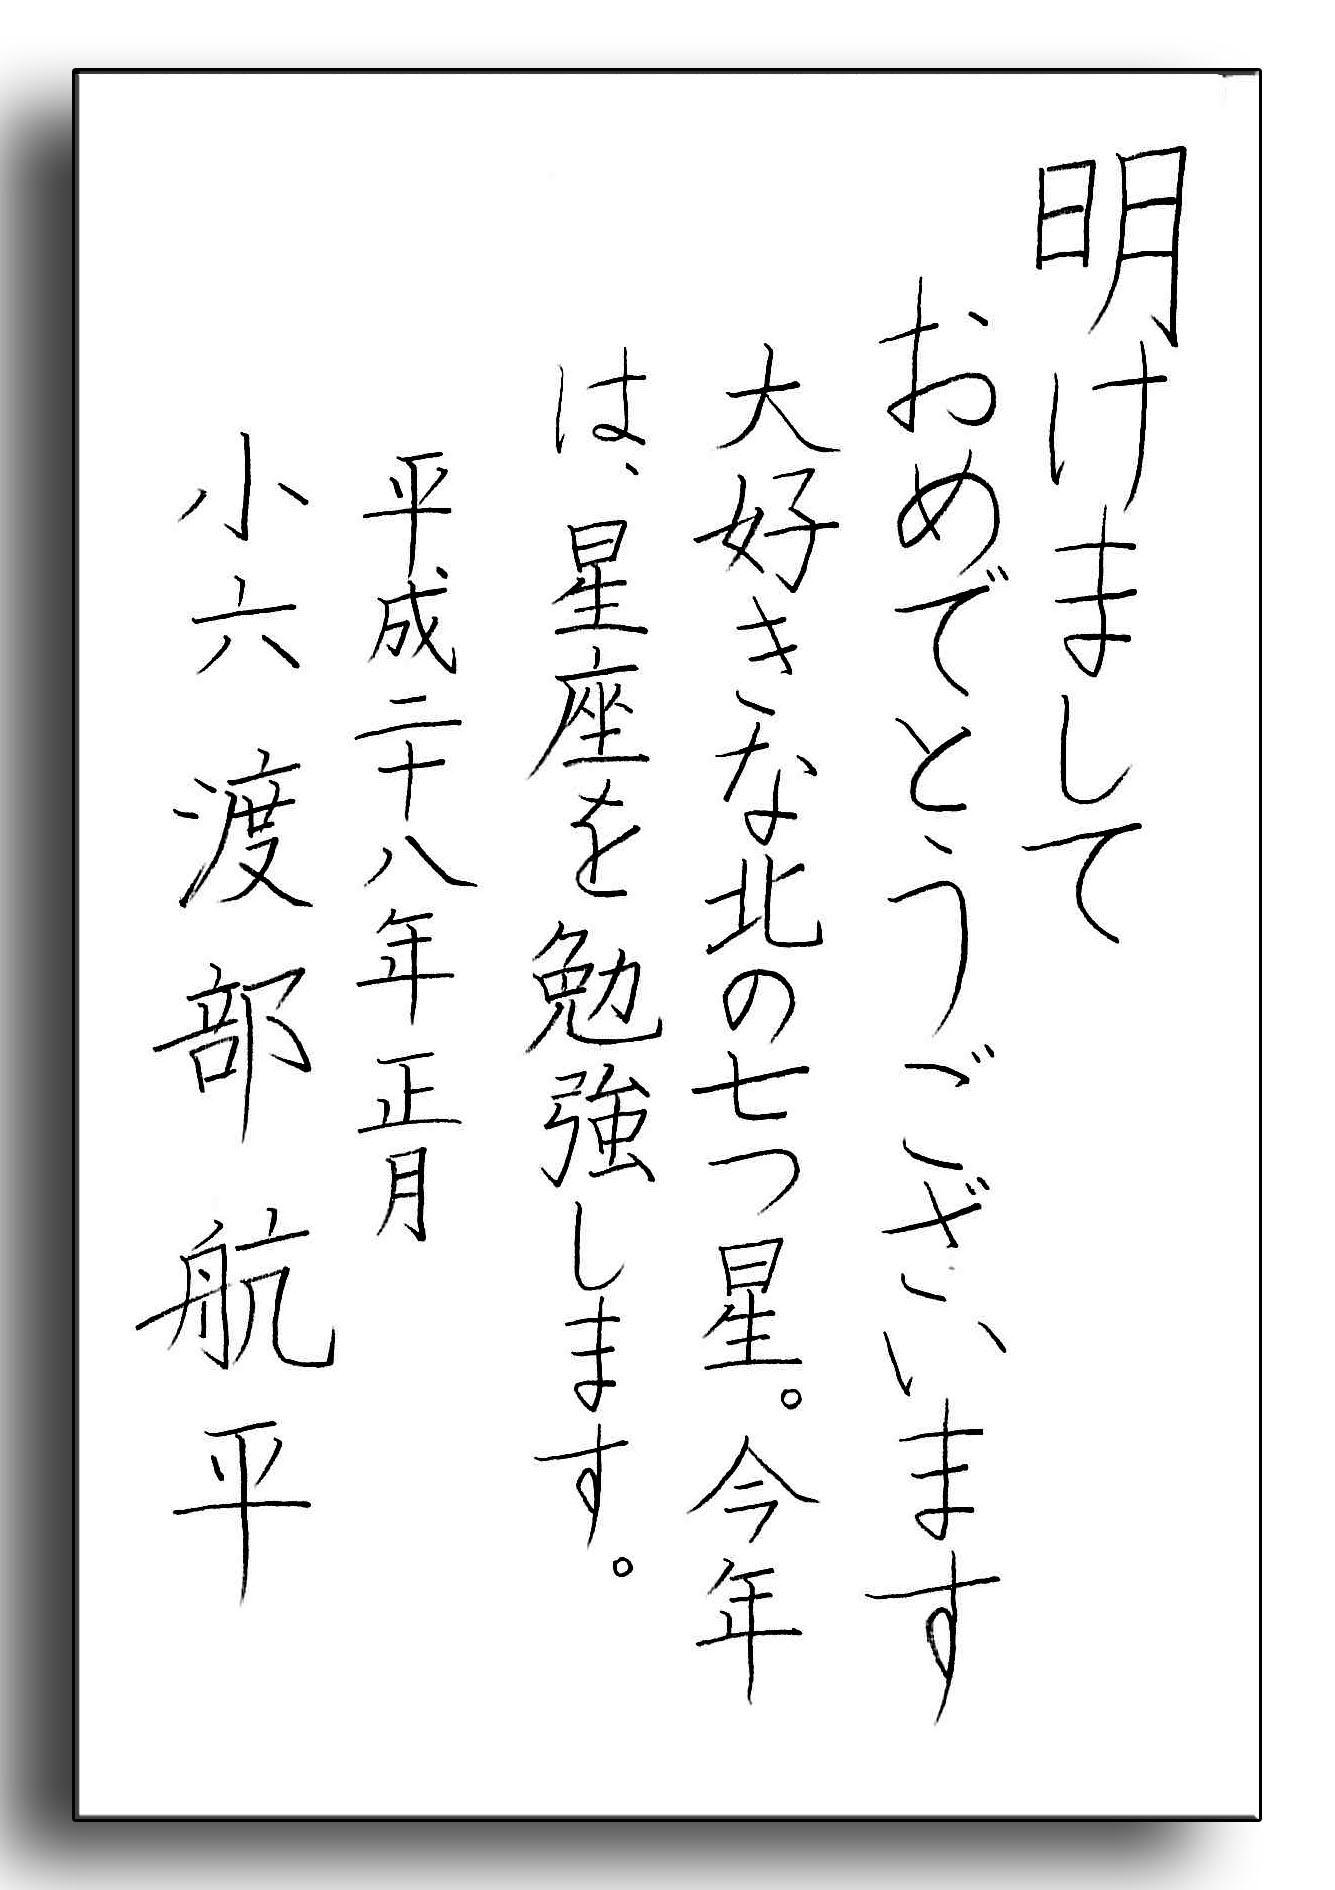 明けまして
おめでとうございます
大好きな北の七つ星。今年
は、星座を勉強します。
平成二十八年正月
小六 渡部航平